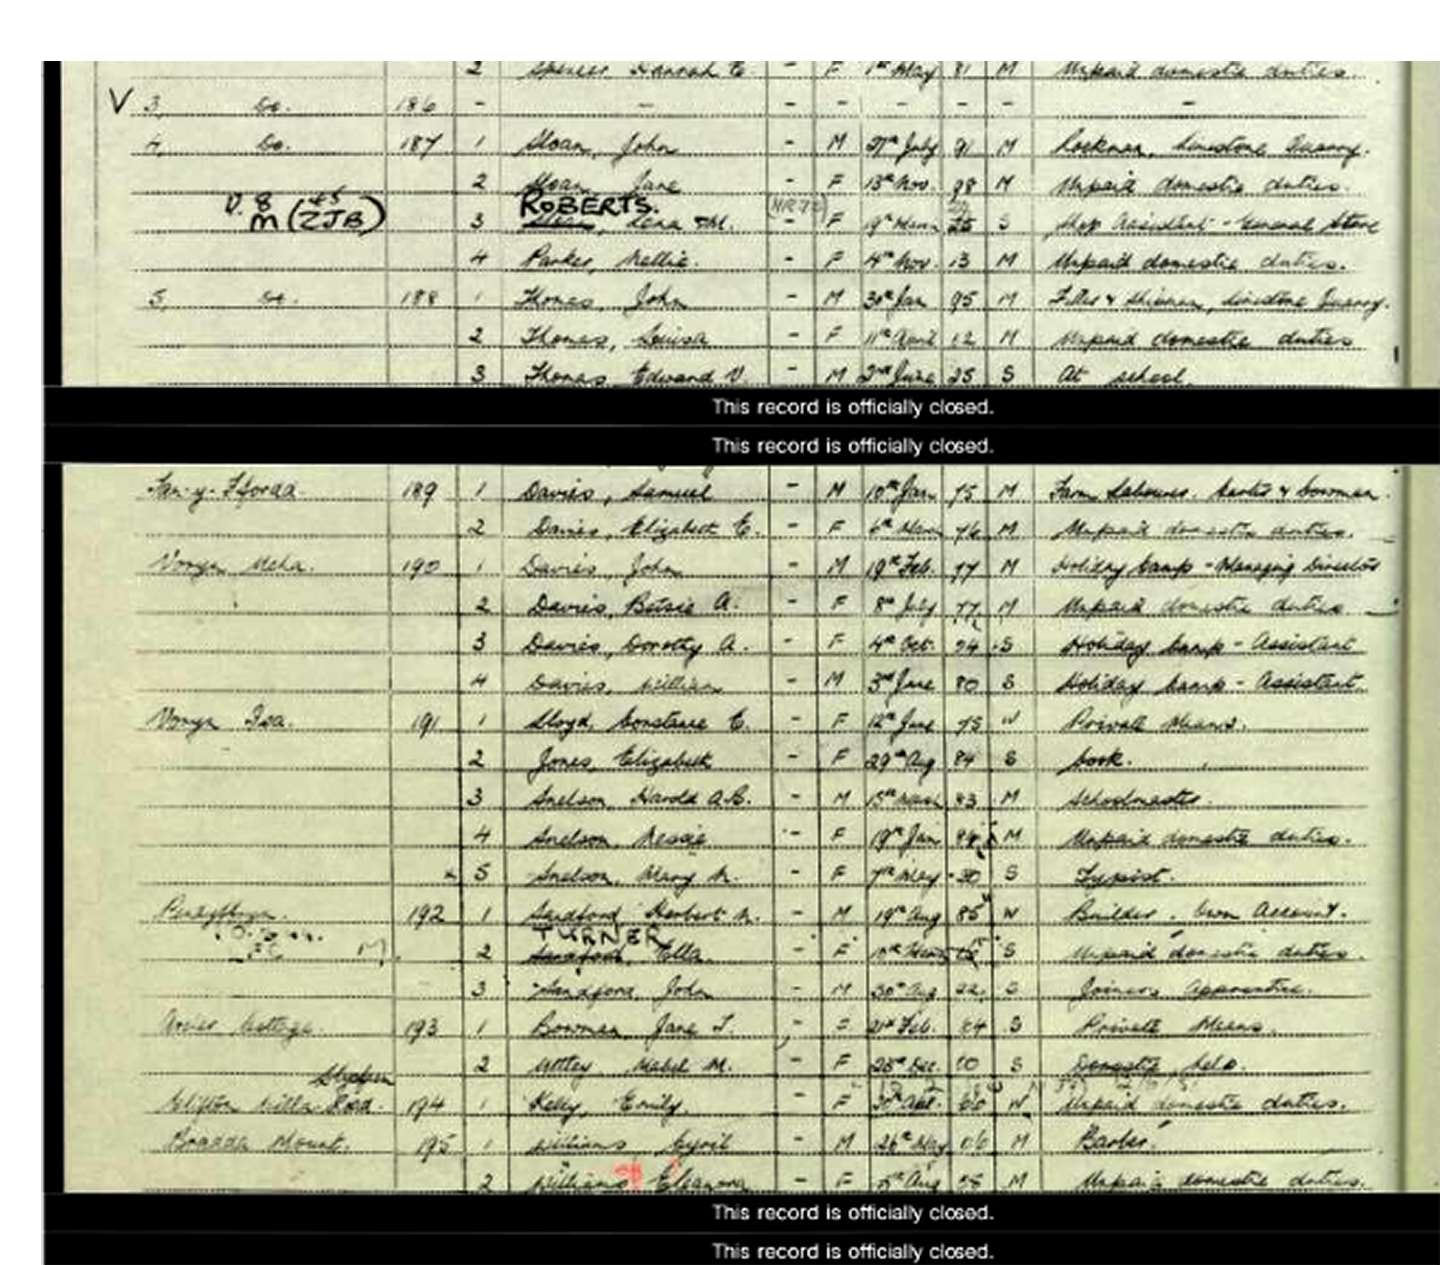 2 Spencer, Hannah E. - F 1st May 81 M Unpaid domestic duties.
V 3, do. 186 - - - - - - - -
4, do. 187 1 Sloan, John - M 27th July 91 M Rockman, Limestone Quarry.
2 Sloan, Jane - F 13th Nov. 98 M Unpaid domestic duties.
ROBERTS.
3 Sloan, Lena M. - F 19th S Shop Assistant - General Store
4 Parker, Nellie. - F 4th Nov. 13 M Unpaid domestic duties.
5, do. 188 1 Thomas, John - M 30th Jan 95 M Filler & Limestone Quarry.
2 Thomas, Louisa - F 11th April 12 M Unpaid domestic duties
3 Thomas Edward V. - M 2nd June 25 S At school.
This record is officially closed.
This record is officially closed.
189 1 Davies, Samuel - M 10th Jan 75 M Farm Labourer. &
2 Davies, Elizabeth E. - F 6th 76 M Unpaid domestic duties.
190 1 Davies, John - M 19th Feb. 77 M Holiday Camp - Managing Director
2 Davies, Betsie A. - F 8th July 77 M Unpaid domestic duties
3 Davies, Dorothy A. - F 4th Oct. S Holiday Camp - Assistant
4 Davies, William - M 3rd June 80 S Holiday Camp - Assistant.
191 1 Lloyd, Constance E. - F 12th June 75 W Private Means.
2 Jones, Elizabeth - F 29th Aug 84 S Cook.
3 Snelson, Harold A.C. - M 15th 83 M Schoolmaster.
4 Snelson, Nessie - F 19th Jan M Unpaid domestic duties.
5 Snelson, Mary N. - F 7th May 20 S Typist.
192 1 Sandford, Herbert N. - M 19th Aug 85 W Builder. Own Account.
TURNER
2 Sandford, Ella. - F 10th S Unpaid domestic duties.
3 Sandford, John - M 30th Aug 22 S Joiners Apprentice.
Cottage. 193 1 Bowman, Jane T. - F 21st Feb. 64 S Private Means.
2 Mabel M. - F 25th Dec. 00 S Domestic help.
Clifton Villa 194 1 Kelly, Emily. - F 30th Apr. W Unpaid domestic duties.
Mount. 195 1 Williams Cyril - M 26th May 06 M Barber.
2 Williams Eleanora - F 5th Aug M Unpaid domestic duties.
This record is officially closed.
This record is officially closed.